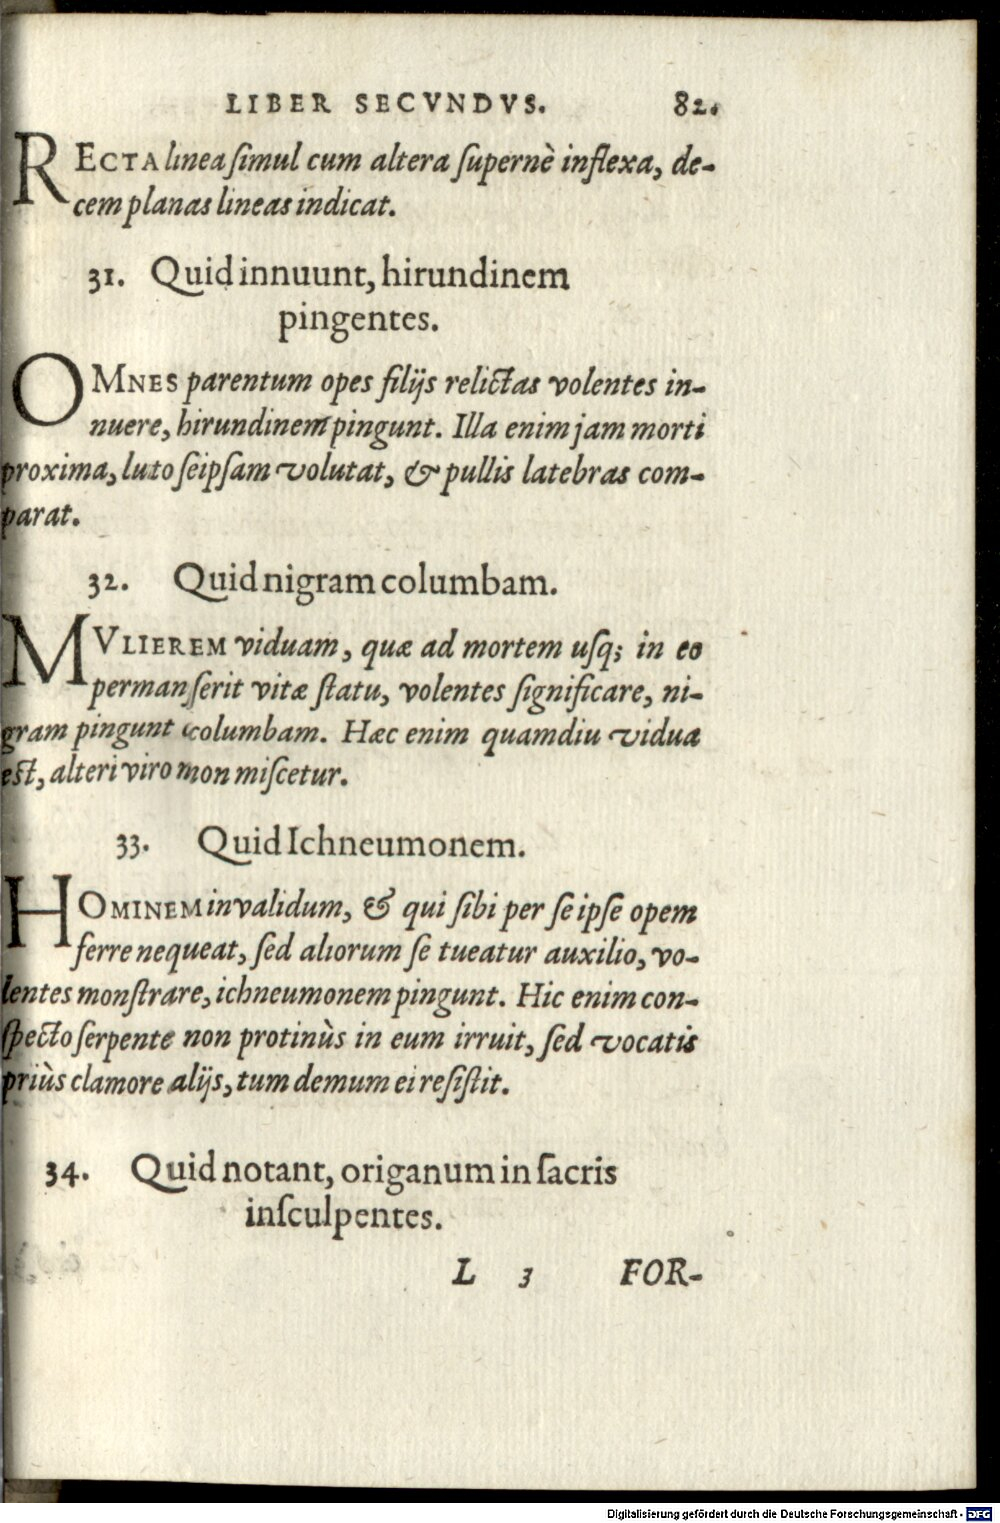 LIBER SECVNDVS. 82.
RECTA linea simul cum altera supernè inflexa, de-
cem planas lineas indicat.
31. Quid innuunt, hirundinem
pingentes.
OMNES parentum opes filijs relictas volentes in-
nuere, hirundinem pingunt. Illa enim jam morti
proxima, luto seipsam volutat, & pullis latebras com-
parat.
32. Quid nigram columbam.
MVLIEREM viduam, quæ ad mortem usq; in eo
permanserit vitæ statu, volentes significare, ni-
gram pingunt columbam. Hæc enim quamdiu vidua
est, alteri viro mon miscetur.
33. Quid Ichneumonem.
HOMINEM invalidum, & qui sibi per se ipse opem
ferre nequeat, sed aliorum se tueatur auxilio, vo-
lentes monstrare, ichneumonem pingunt. Hic enim con-
specto serpente non protinùs in eum irruit, sed vocatis
priùs clamore alijs, tum demum ei resistit.
34. Quid notant, origanum in sacris
insculpentes.
L 3 FOR-
Digitalisierung gefördert durch die Deutsche Forschungsgemeinschaft - DFG